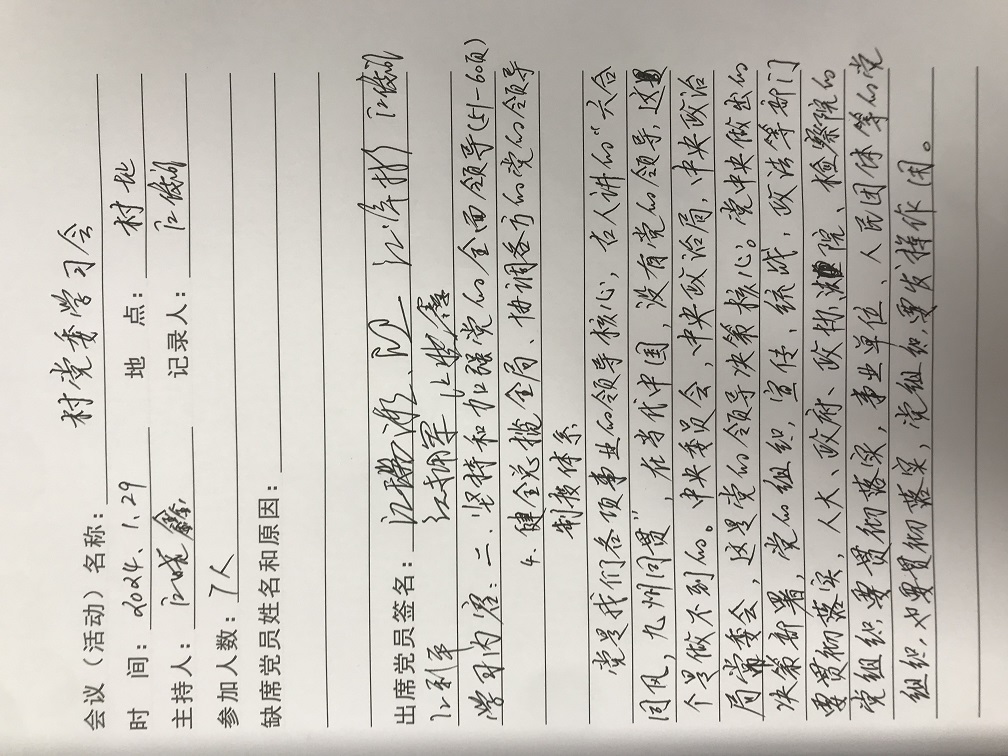 会议（活动）名称：村党委学习会
时 间：2024.1.29 地 点：村址
主持人：江 鑫 记录人：江
参加人数：7人
缺席党员姓名和原因：
出席党员签名：江 江
江利平 江拥军 江
学习内容：二.坚持和加强党的全面领导(51-60页)
4.健全总揽全局、协调各方的党的领导
制度体系
党是我们各项事业的领导核心，古人讲的“六合
同风，九州同贯”，在当代中国，没有党的领导，这
个是做不到的。中央委员会，中央政治局，中央政治
局常委会，这是党的领导决策核心。党中央做出的
决策部署，党的组织，宣传，统战，政法等部门
要贯彻落实，人大、政府、政协、法院、检察院的
党组织要贯彻落实，事业单位、人民团体等的党
组织也要贯彻落实，党组织要发挥作用。